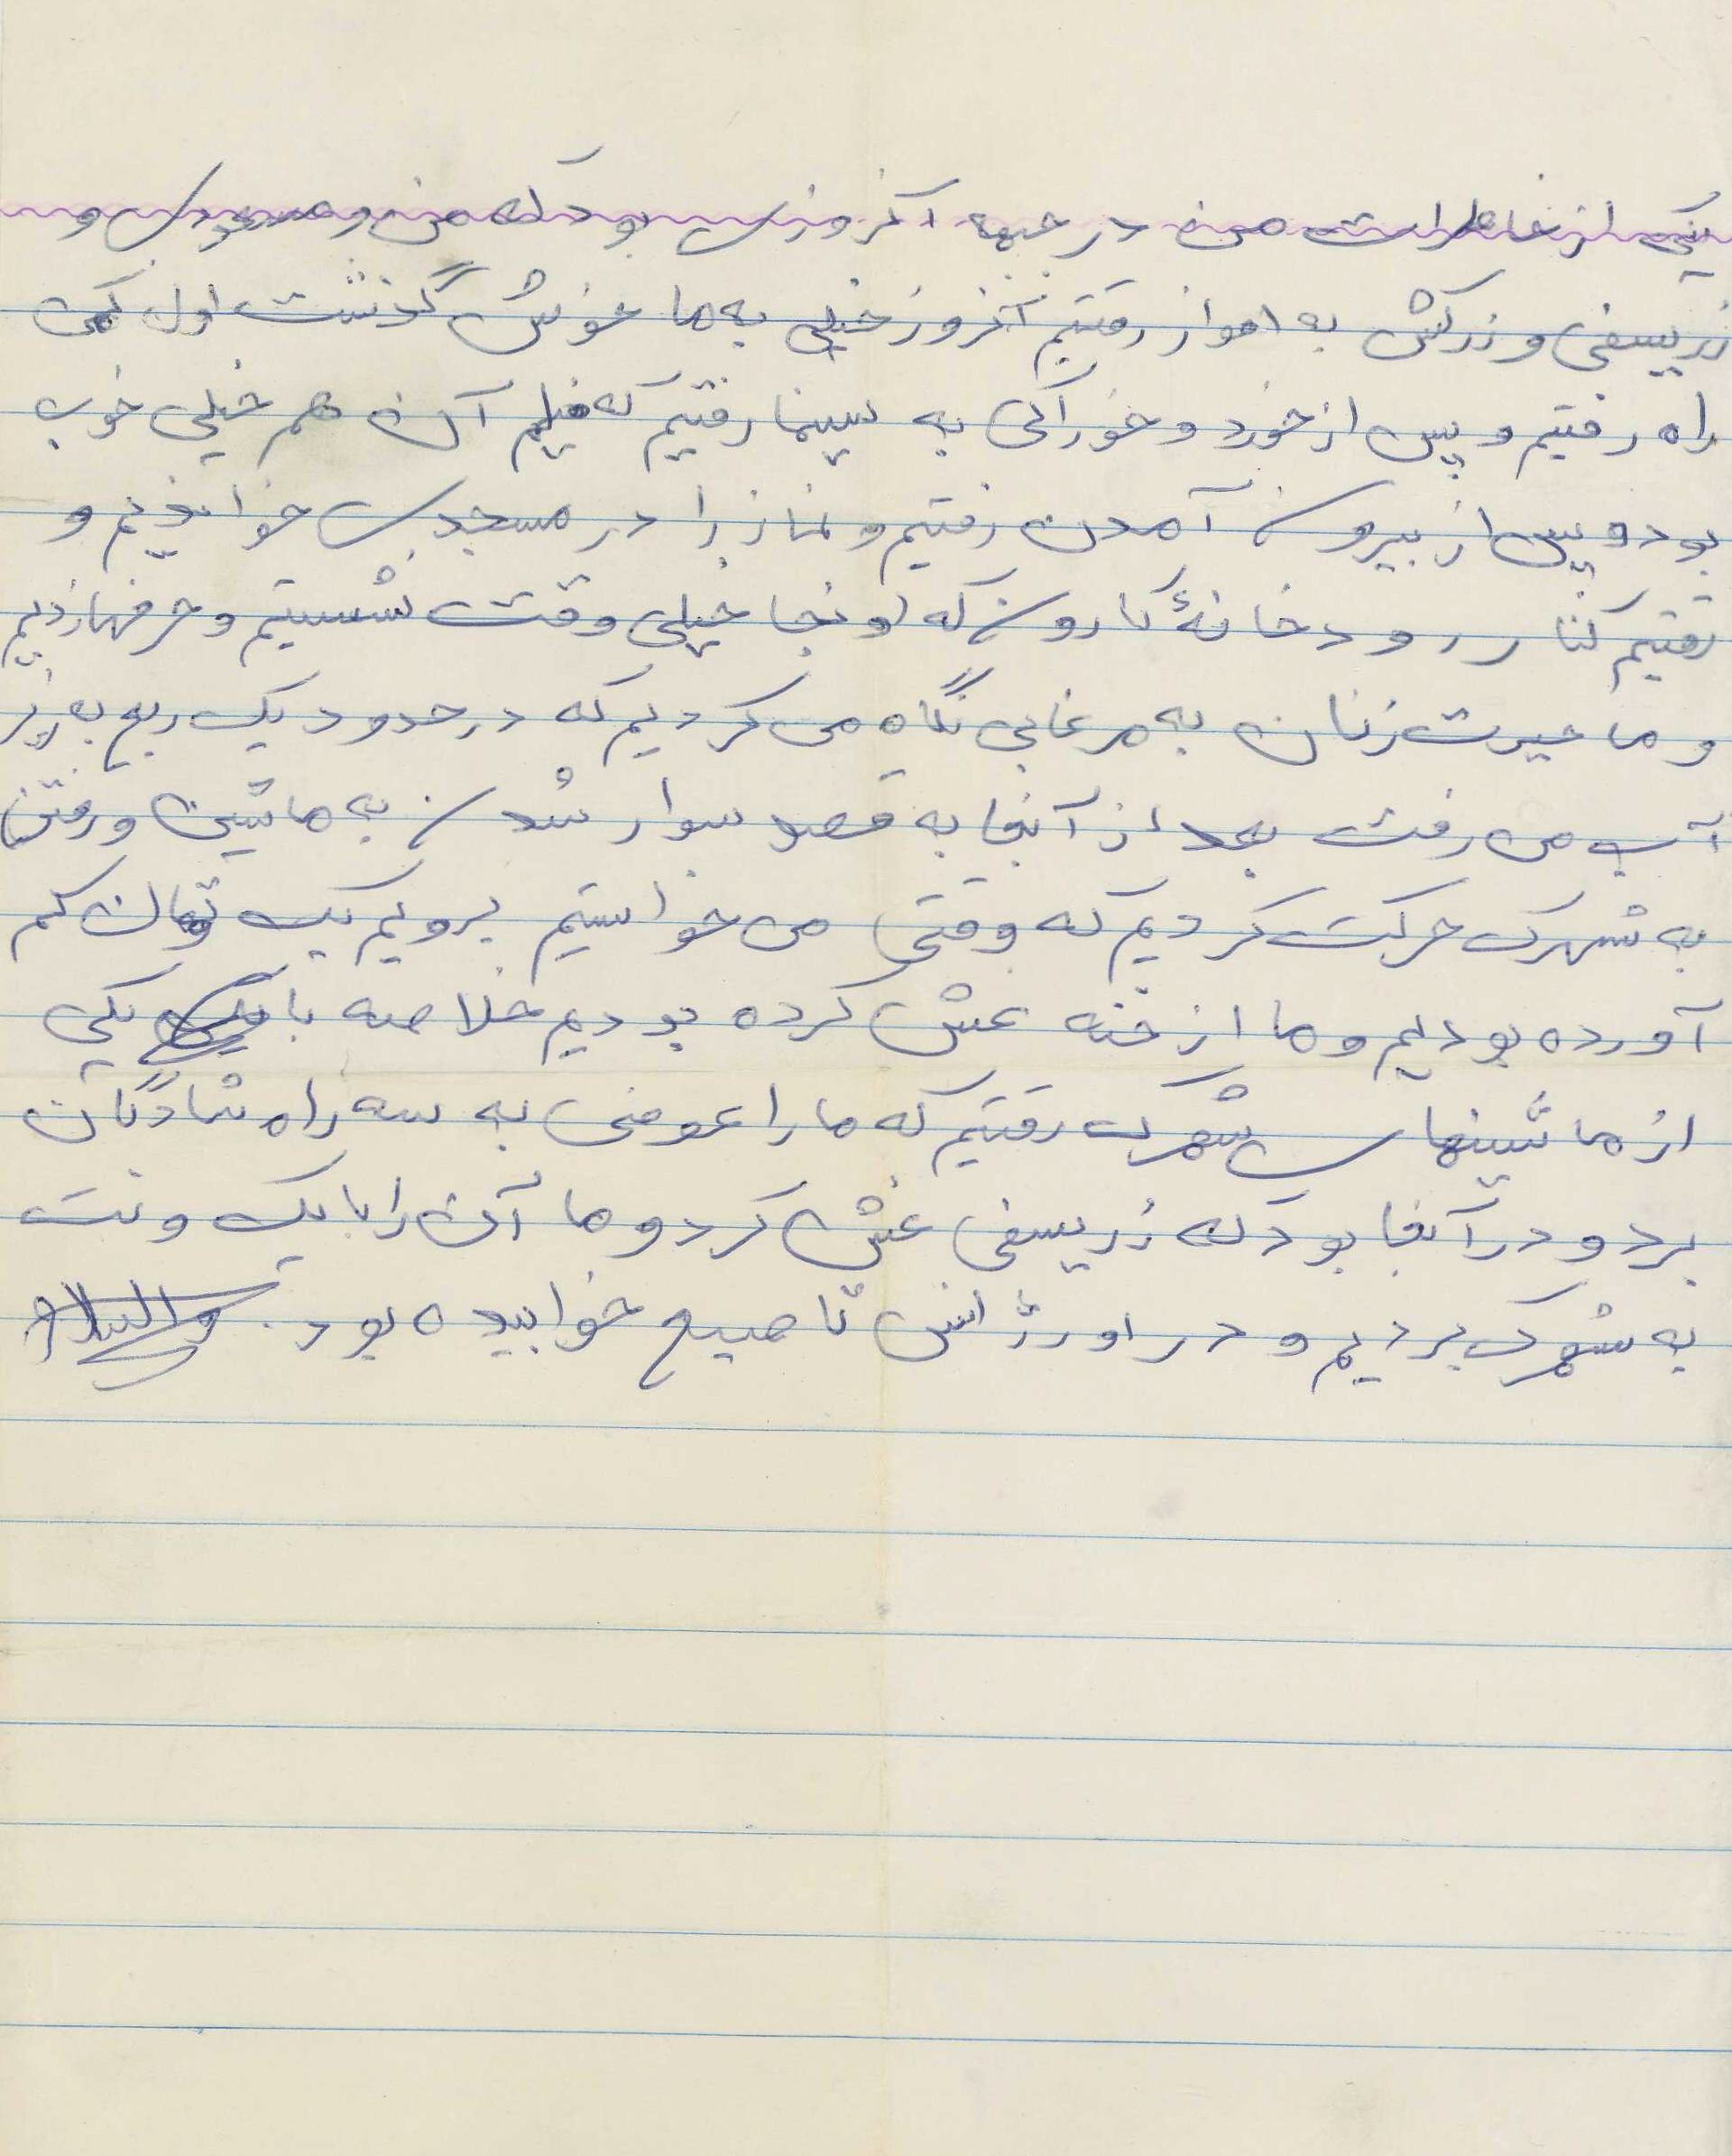 یکی از خاطرات من در جبهه آنروزی بود که من و مسعودی و
زریسفی و زرکش به اهواز رفتیم آنروز خیلی به ما خوش گذشت اول کمی
راه رفتیم و پس از خورد و خوراکی به سینما رفتیم که فیلم آن هم خیلی خوب
بود و پس از بیرون آمدن رفتیم و نماز را در مسجدی خواندیم و
رفتیم کنار رودخانهٔ کارون که اونجا خیلی وقت نشستیم و حرفها زدیم
و ما حیرت زنان به مرغابی نگاه می کردیم که در حدود یک ربع به زیر
آب می رفت بعد از آنجا به قصد سوار شدن به ماشین و رفتن
به شهرک حرکت کردیم که وقتی می خواستیم برویم یک تومان کم
آورده بودیم و ما از خنه غش کرده بودیم خلاصه با یکی
از ماشینهای شهرک رفتیم که ما را عوضی به سه راه شادگان
برد و در آنجا بود که زریسفی غش کرد و ما آن را با یک ونت
به شهرک بردیم و در اورژانس تا صبح خوابیده بود. والسلام